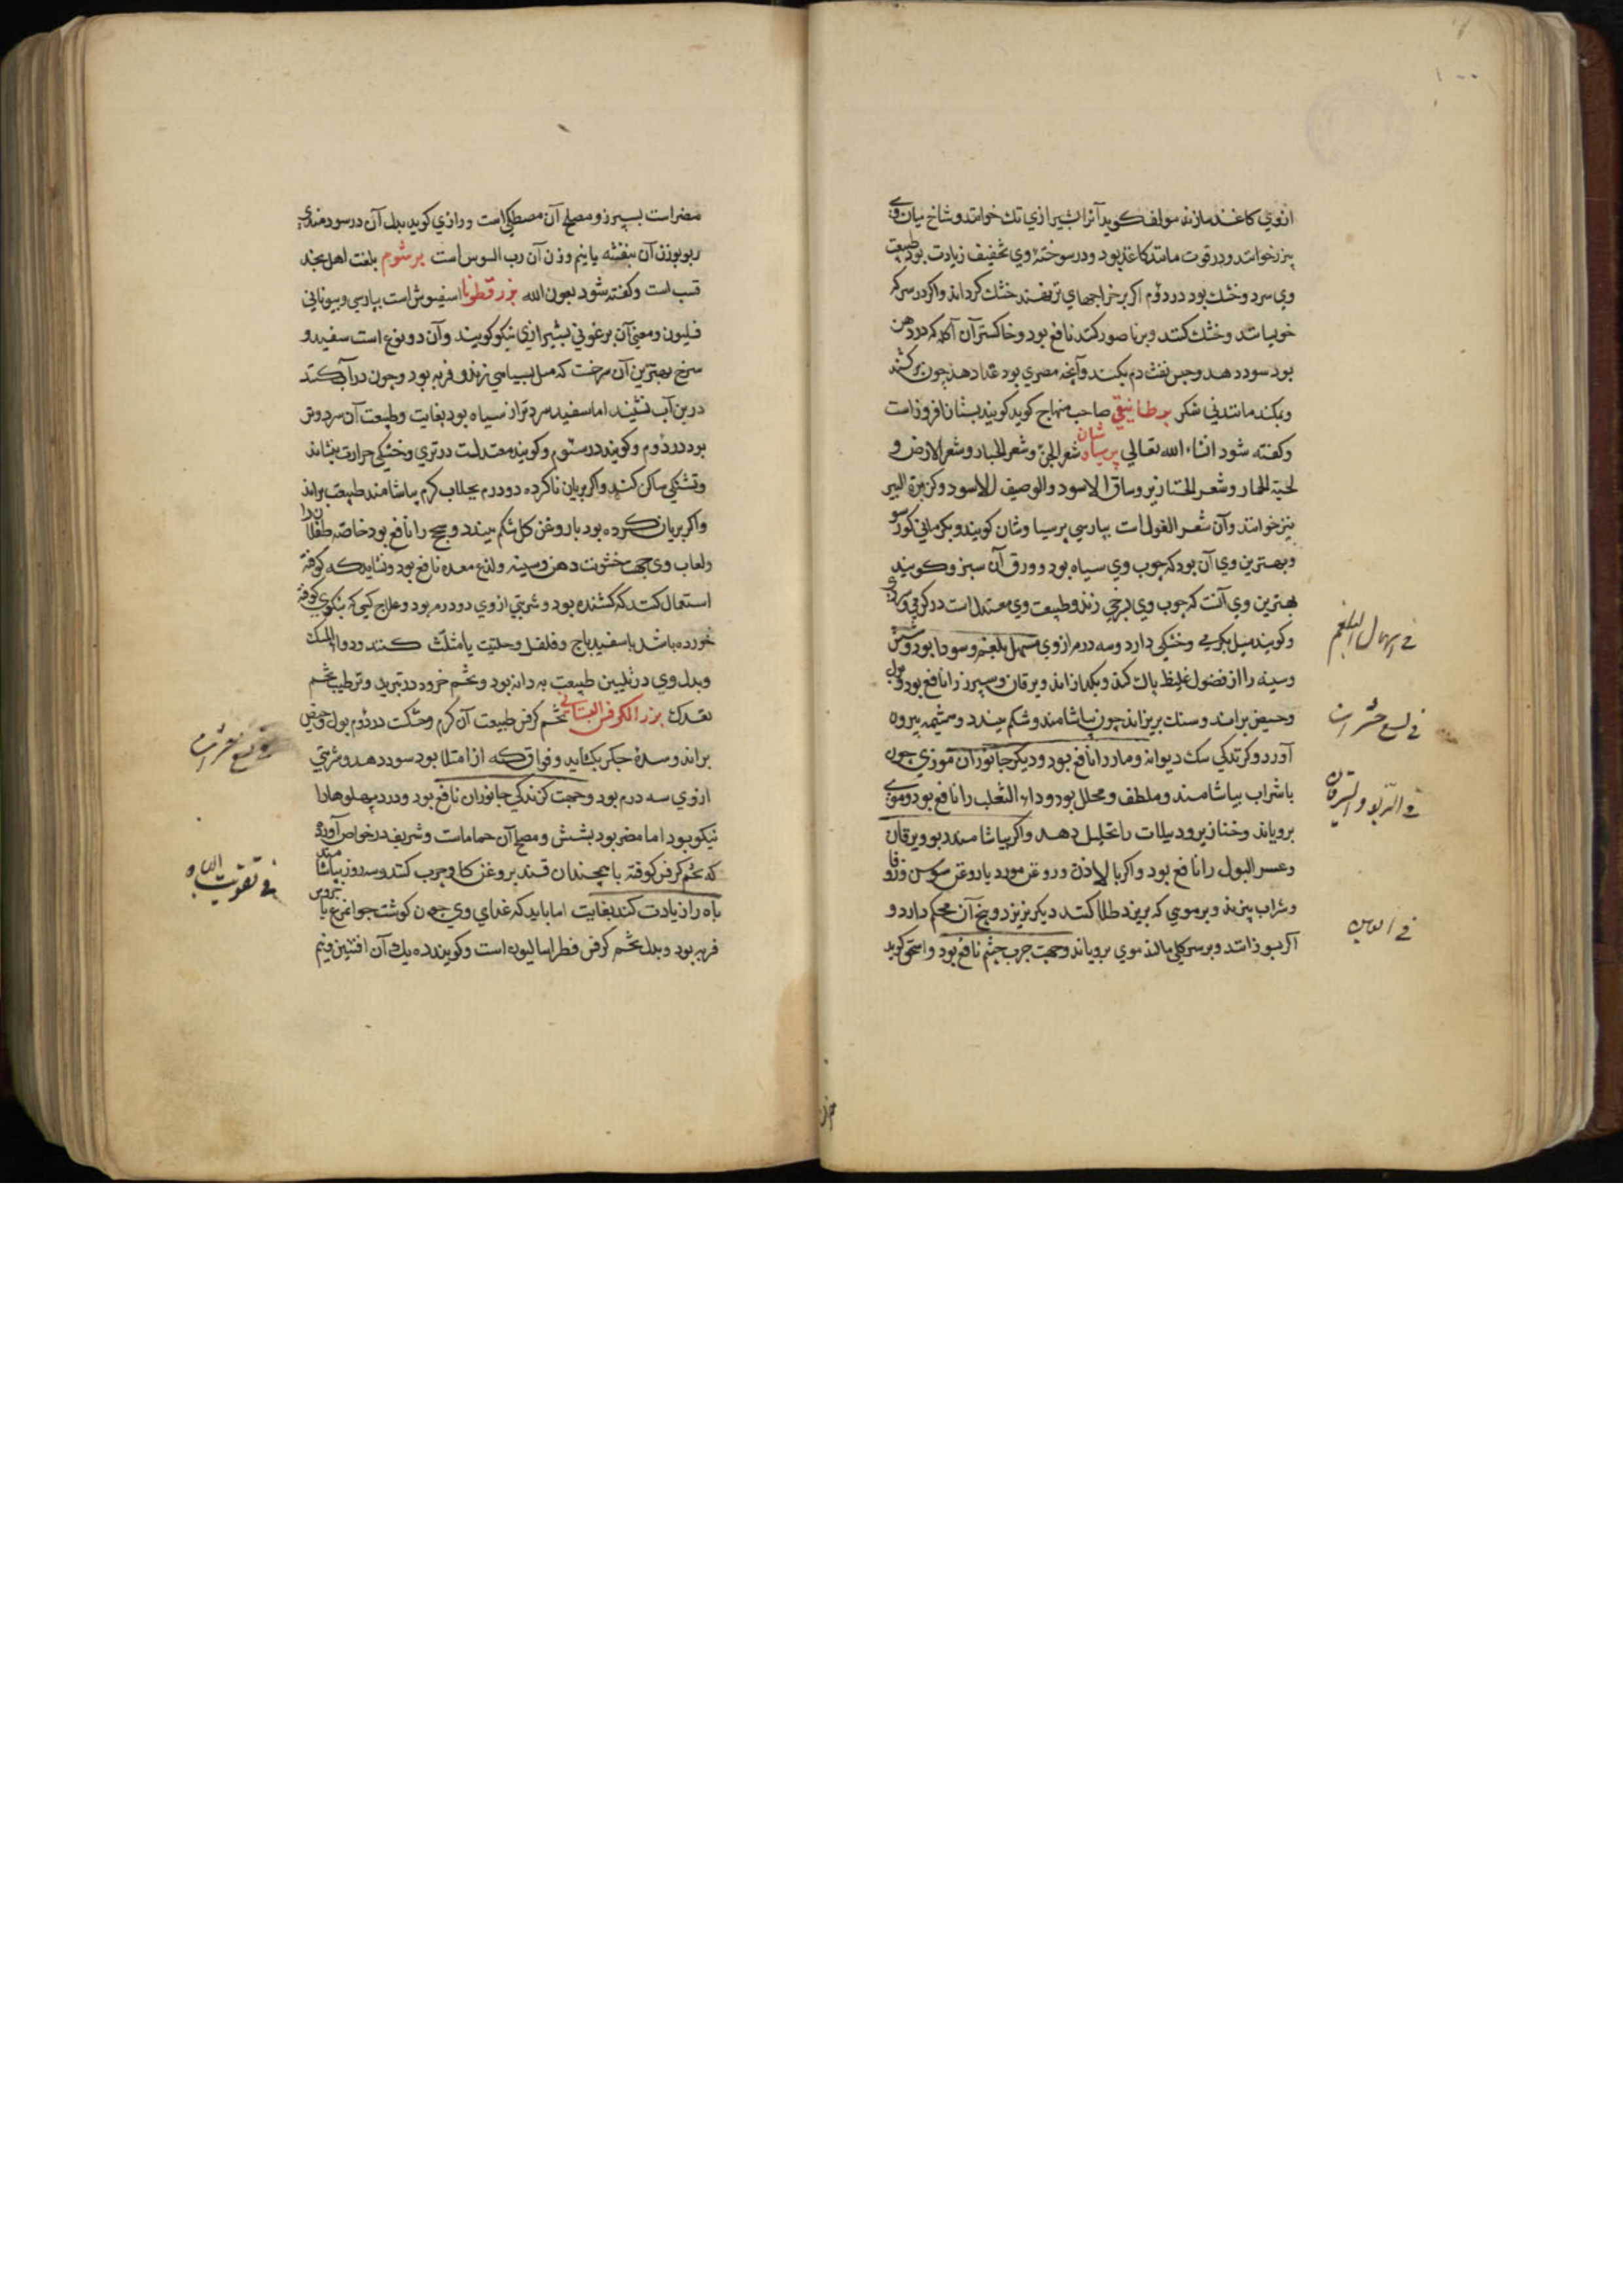 ۱۰۰
ازوي کاغذ سازند مولف کويد آنرا بشيرازي تک خوانند و شاخ ميان وي
پيزر خوانند و در قوت مانند کاغذ بود و در سوختهٔ وي تجفيف زيادت بود طبيعت
وي سرد و خشک بود در دوم اکر بر خراجهاي تر نهند خشک کرداند واکر در سرکه
خويسانند و خشک کنند و بر ناصور کنند نافع بود و خاکستر آن آکله که در دهن
بود سود دهد و حبس نفث دم بکند و آنچه مصري بود غذا دهد چون
و بمکند مانند ني شکر برطانيقي صاحب منهاج کويد کويند بستان افروز است
و کفته شود انشاء الله تعالي پرسياوشان شعر الجن و شعر الجبار و شعر الارض و
لحية الحمار و شعر الخنازير و ساق الاسود والوصيف الاسود و کزبرة البير
نيز خوانند و آن شعر الغول است بپارسي پرسياوشان کويند و بکرماني کورسو
و بهترين وي آن بود که چوب وي سياه بود و ورق آن سبز و کويند
بهترين وي آنست که چوب وي بسرخي زند و طبيعت وي معتدل است در کرمي و
و کويند ميل بکرمي و خشکي دارد و سه درم ازوي مسهل بلغم و سودا بود و شش
و سينه را از فضول غليظ پاک کند و بکدازاند و يرقان و سپرز را نافع بود و بول
و حيض براند و سنک بريزاند چون بياشامند و شکم ببندد و مشيمه بيرون
آورد و کزندکي سک ديوانه و مار را نافع بود و ديکر جانوران موذي چون
باشراب بياشامند و ملطف و محلل بود و داء الثعلب را نافع بود و موي
بروياند و خنازير و دبيلات را تحليل دهد واکر بياشامند ربو و يرقان
و عسر البول را نافع بود واکر با لاذن و روغن مورد يا روغن سوسن و زوفا
و شراب بپزند و بر مويي که بريزد طلا کنند ديکر نريزد و بيخ آن محکم دارد و
اکر بسوزانند و بر سر کل مالند موي بروياند و جهت جرب چشم نافع بود و اسحق کويد
في اسهال البلغم
في لسع حشرات
في الربو و اليرقان
مضر است بسپرز و مصلح آن مصطکي است و رازي کويد بدل آن در سودمندي
ربو بوزن آن بنفشه يا نيم وزن آن رب السوس است برشوم بلغت اهل نجد
قسب است و کفته شود بعون الله بزر قطونا اسفيوش است بپارسي و بيوناني
فسليون و معني آن برغوثي بشيرازي بنکو کويند و آن دو نوع است سفيد و
سرخ بهترين آن سرخست که ميل بسياهي زند و فربه بود و چون در آب کنند
در بن آب نشيند اما سفيد سرد تر از سياه بود بغايت و طبيعت آن سرد و تر
بود در دوم و کويند در سيوم و کويند معتدلست در تري و خشکي حرارت بنشاند
و تشنکي ساکن کند واکر بريان ناکرده دو درم بجلاب کرم بياشامند طبيعت براند
واکر بريان کرده بود با روغن کل شکم ببندد و سحج را نافع بود خاصه طفلان را
و لعاب وي جهت خشونت دهن و سينه و لذع معده نافع بود و نشايد که کوفته
استعمال کنند که کشنده بود و شربتي ازوي دو درم بود و علاج کسي که بنکوي کوفته
خورده باشد باسفيدباج و فلفل و حلتيت يا مثلث کنند و دوا المسک
و بدل وي در تليين طبيعت به دانه بود و تخم خرفه در تبريد و ترطيب تخم
بقدرک بزر الکرفس البستاني تخم کرفس طبيعت آن کرم و خشکست در دوم بول و حيض
براند و سدهٔ جکر بکشايد و فواق که از امتلا بود سود دهد و شربتي
ازوي سه درم بود و جهت کزندکي جانوران نافع بود و درد پهلوها را
نيکو بود اما مضر بود بشش و مصلح آن حماماست و شريف در خواص آورده
که تخم کرفس کوفته با همچندان قند بروغن کاو چرب کنند و سه روز بياشامند
باه را زيادت کند بغايت اما بايد که غذاي وي چون کوشت جوانمرغ يا خروس
فربه بود و بدل تخم کرفس فطراساليون است و کويند ده يک آن افسنتين و نيم
في لسع حشرات
في تقويت الباه